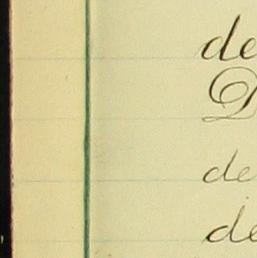 de
D
de
de